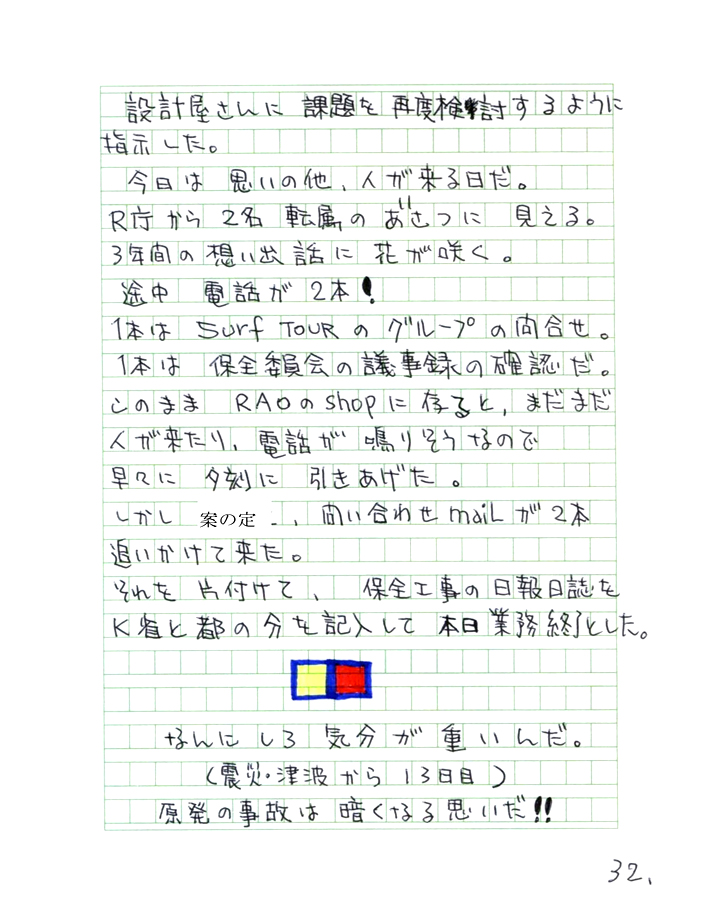 設計屋さんに 課題を 再度検討するように
指示した。
今日は 思いの他、人が来る日だ。
R庁から 2名 転属の あいさつに 見える。
3年間の 想い出話に 花が咲く。
途中 電話が 2本!
1本は Surf TOUR の グループの 問合せ。
1本は 保全委員会の 議事録の 確認だ。
このまま RAOのshopに 存ると、まだまだ
人が来たり、電話が 鳴りそうなので
早々に 夕刻に 引きあげた。
しかし 案の定、問い合わせ maiL が 2本
追いかけて来た。
それを 片付けて、 保全工事の 日報日誌を
K省と都の 分を記入して 本日業務終了とした。
なんにしろ 気分が 重いんだ。
(震災・津波から 13日目)
原発の事故は 暗くなる思いだ!!
32.